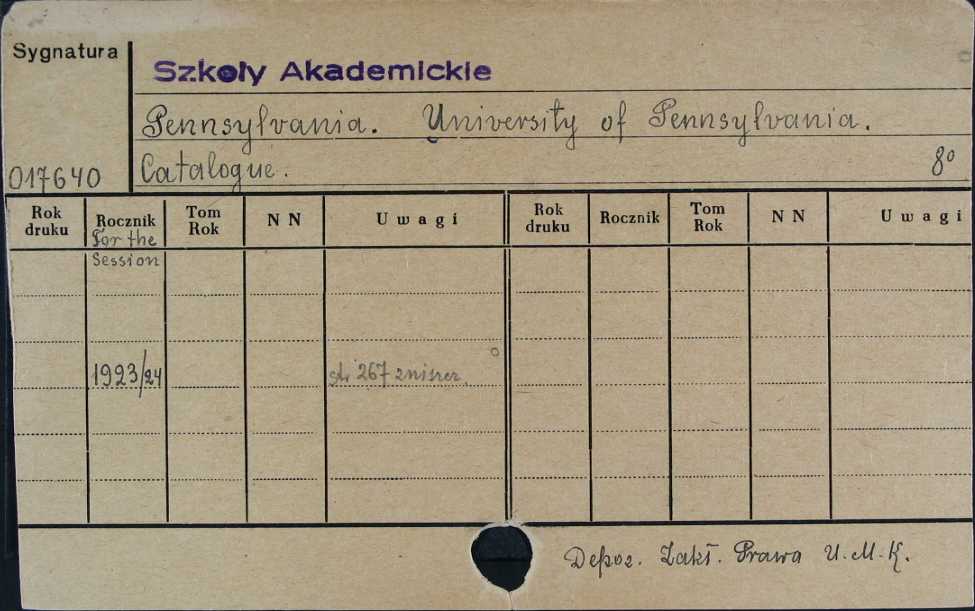 Sygnatura
Szkoły Akademickie
Pennsylvania. University of Pennsylvania.
Catalogue. 8°
017640
Rok druku Rocznik Tom Rok N N Uwagi Rok druku Rocznik Tom Rok N N Uwagi
For the
Session
1923/24 str 267 zniszcz.
Depoz. Zakł. Prawa U.M.K.